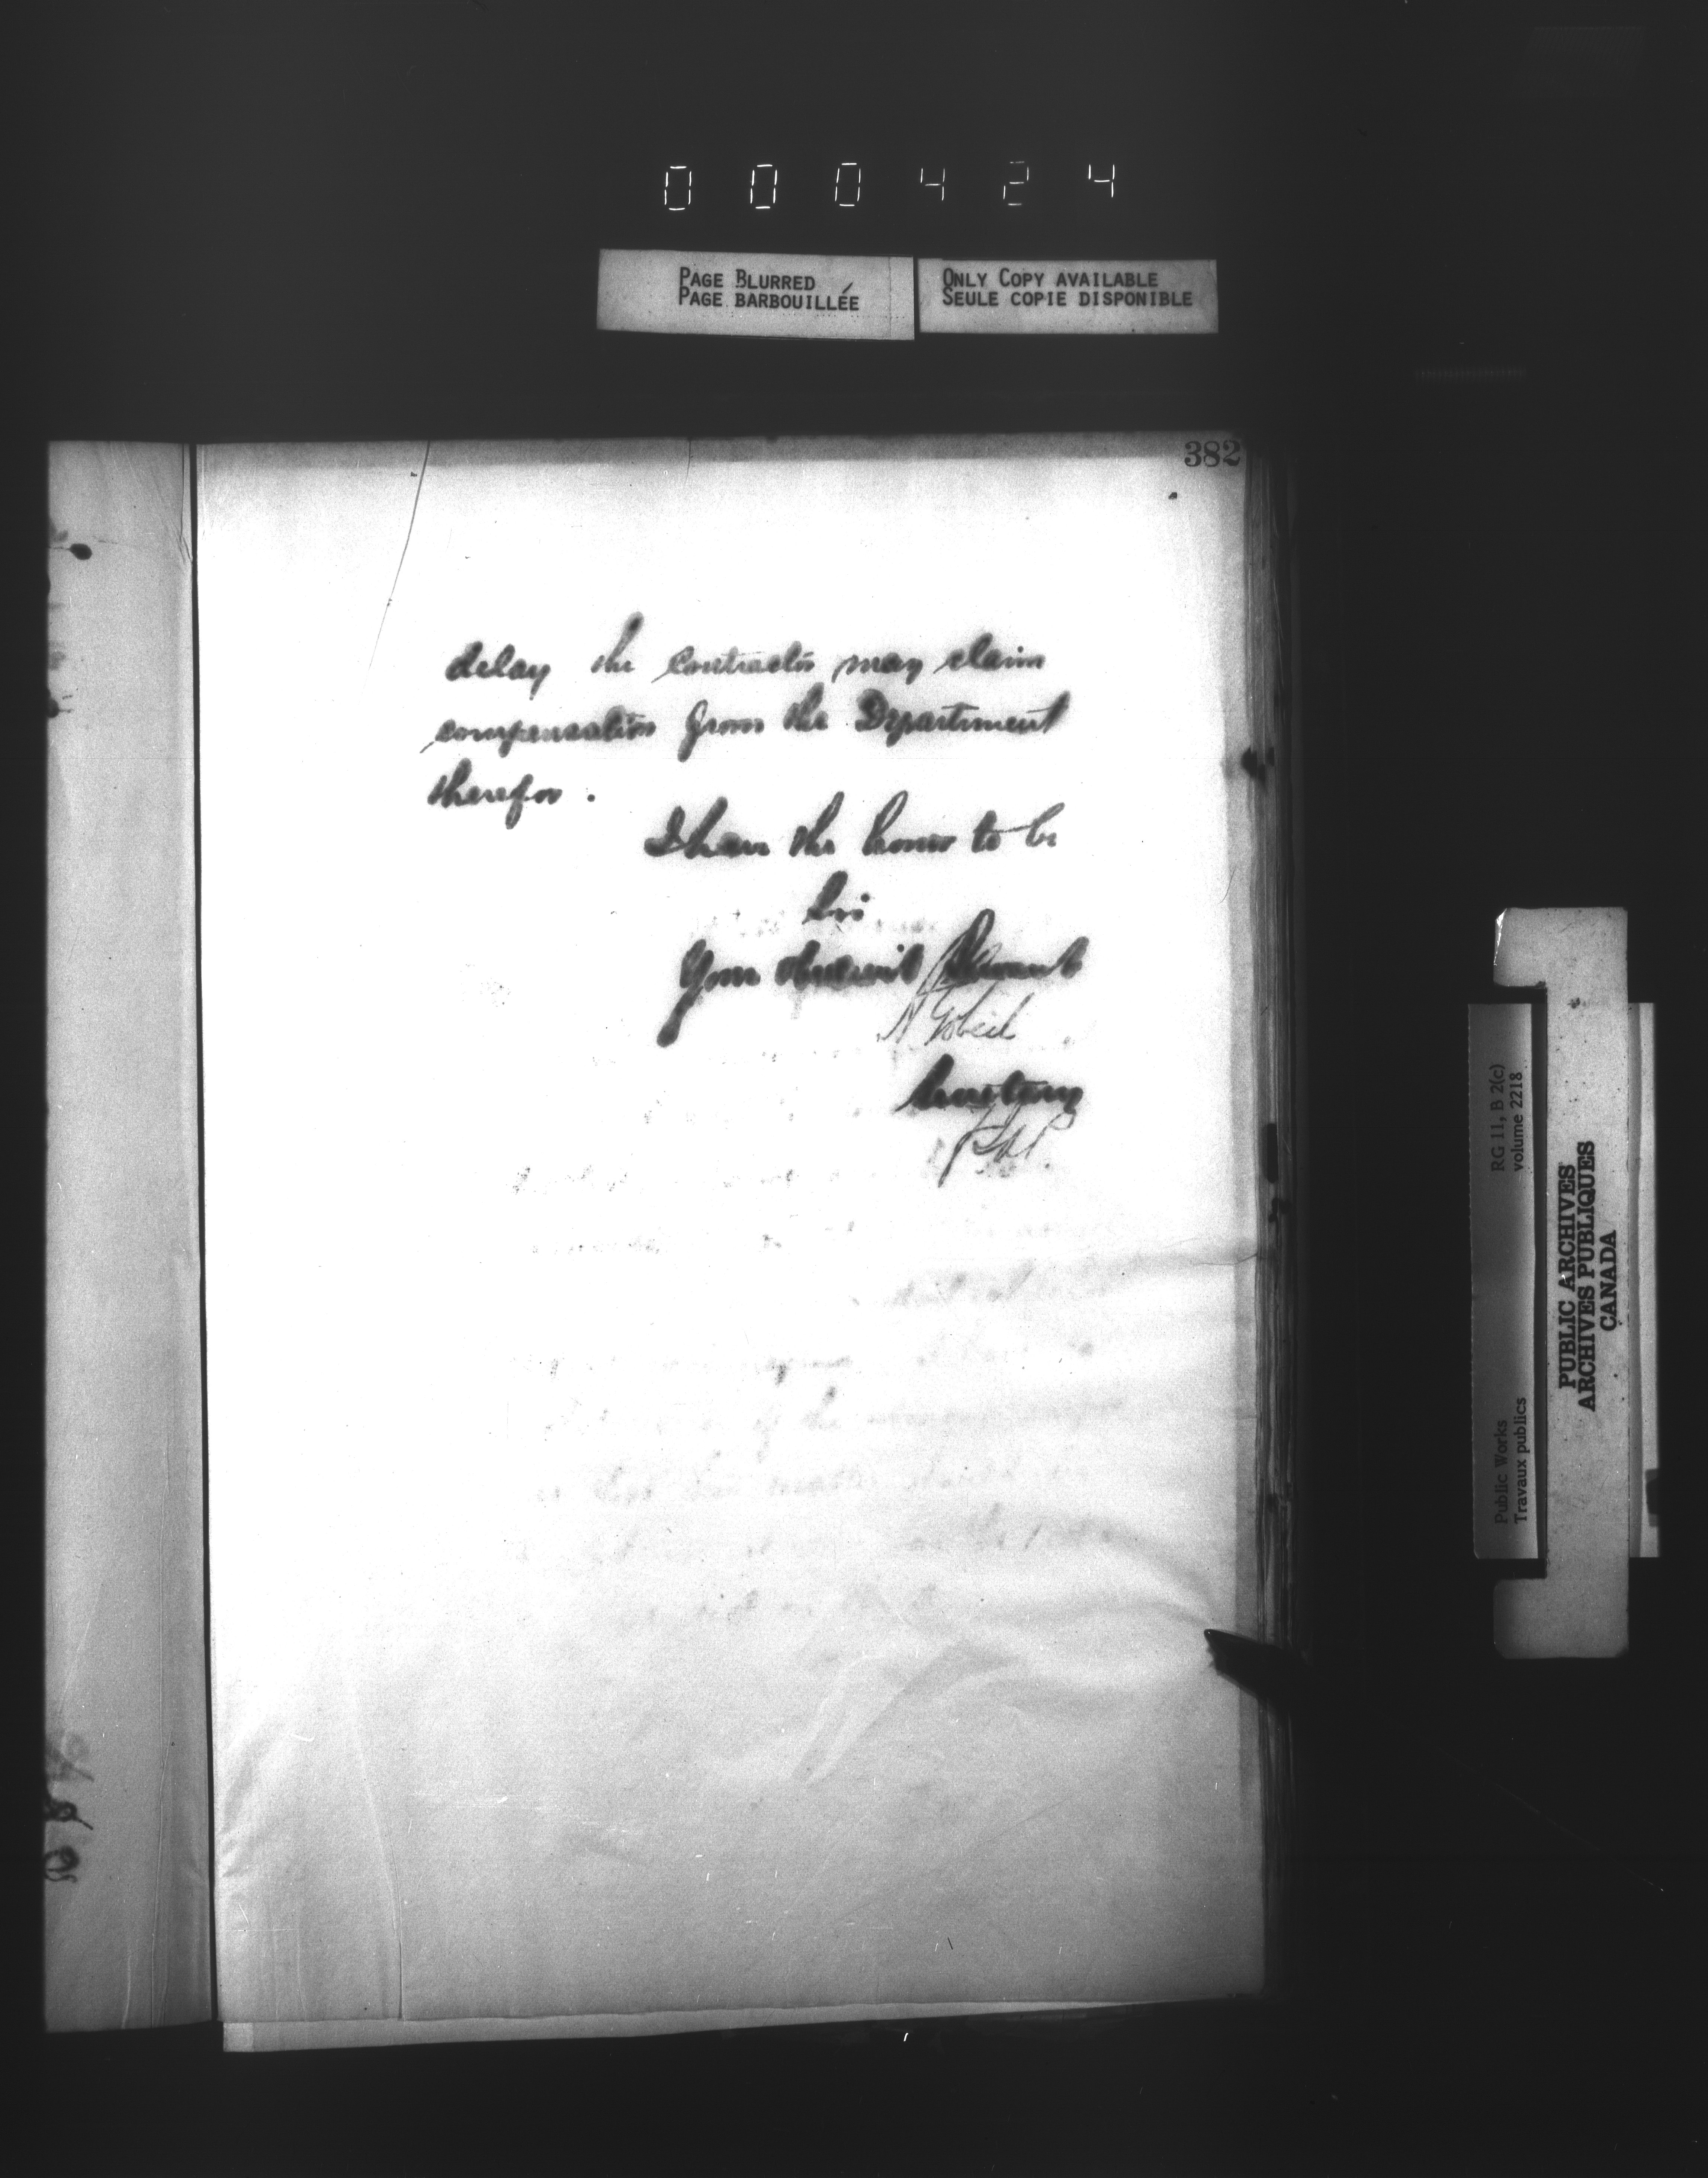 000424
PAGE BLURRED
PAGE BARBOUILLÉE
ONLY COPY AVAILABLE
SEULE COPIE DISPONIBLE
382
delay the contractor may claim
compensation from the Department
therefor.
I have the honor to be
Sir
Your obedient Servant
A Gobeil
Secretary
RG 11, B 2(c)
volume 2218
Public Works
Travaux publics
PUBLIC ARCHIVES
ARCHIVES PUBLIQUES
CANADA